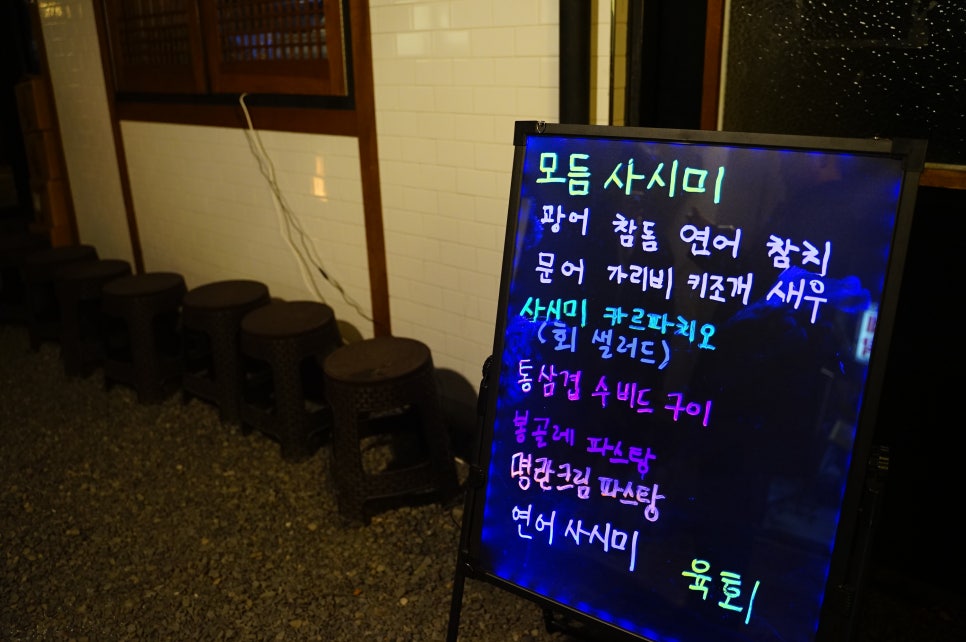 모듬 사시미
광어 참돔 연어 참치
문어 가리비 키조개 새우
사시미 카르파치오
(회 샐러드)
통삼겹 수비드 구이
봉골레 파스탕
명란크림 파스탕
연어 사시미
육회